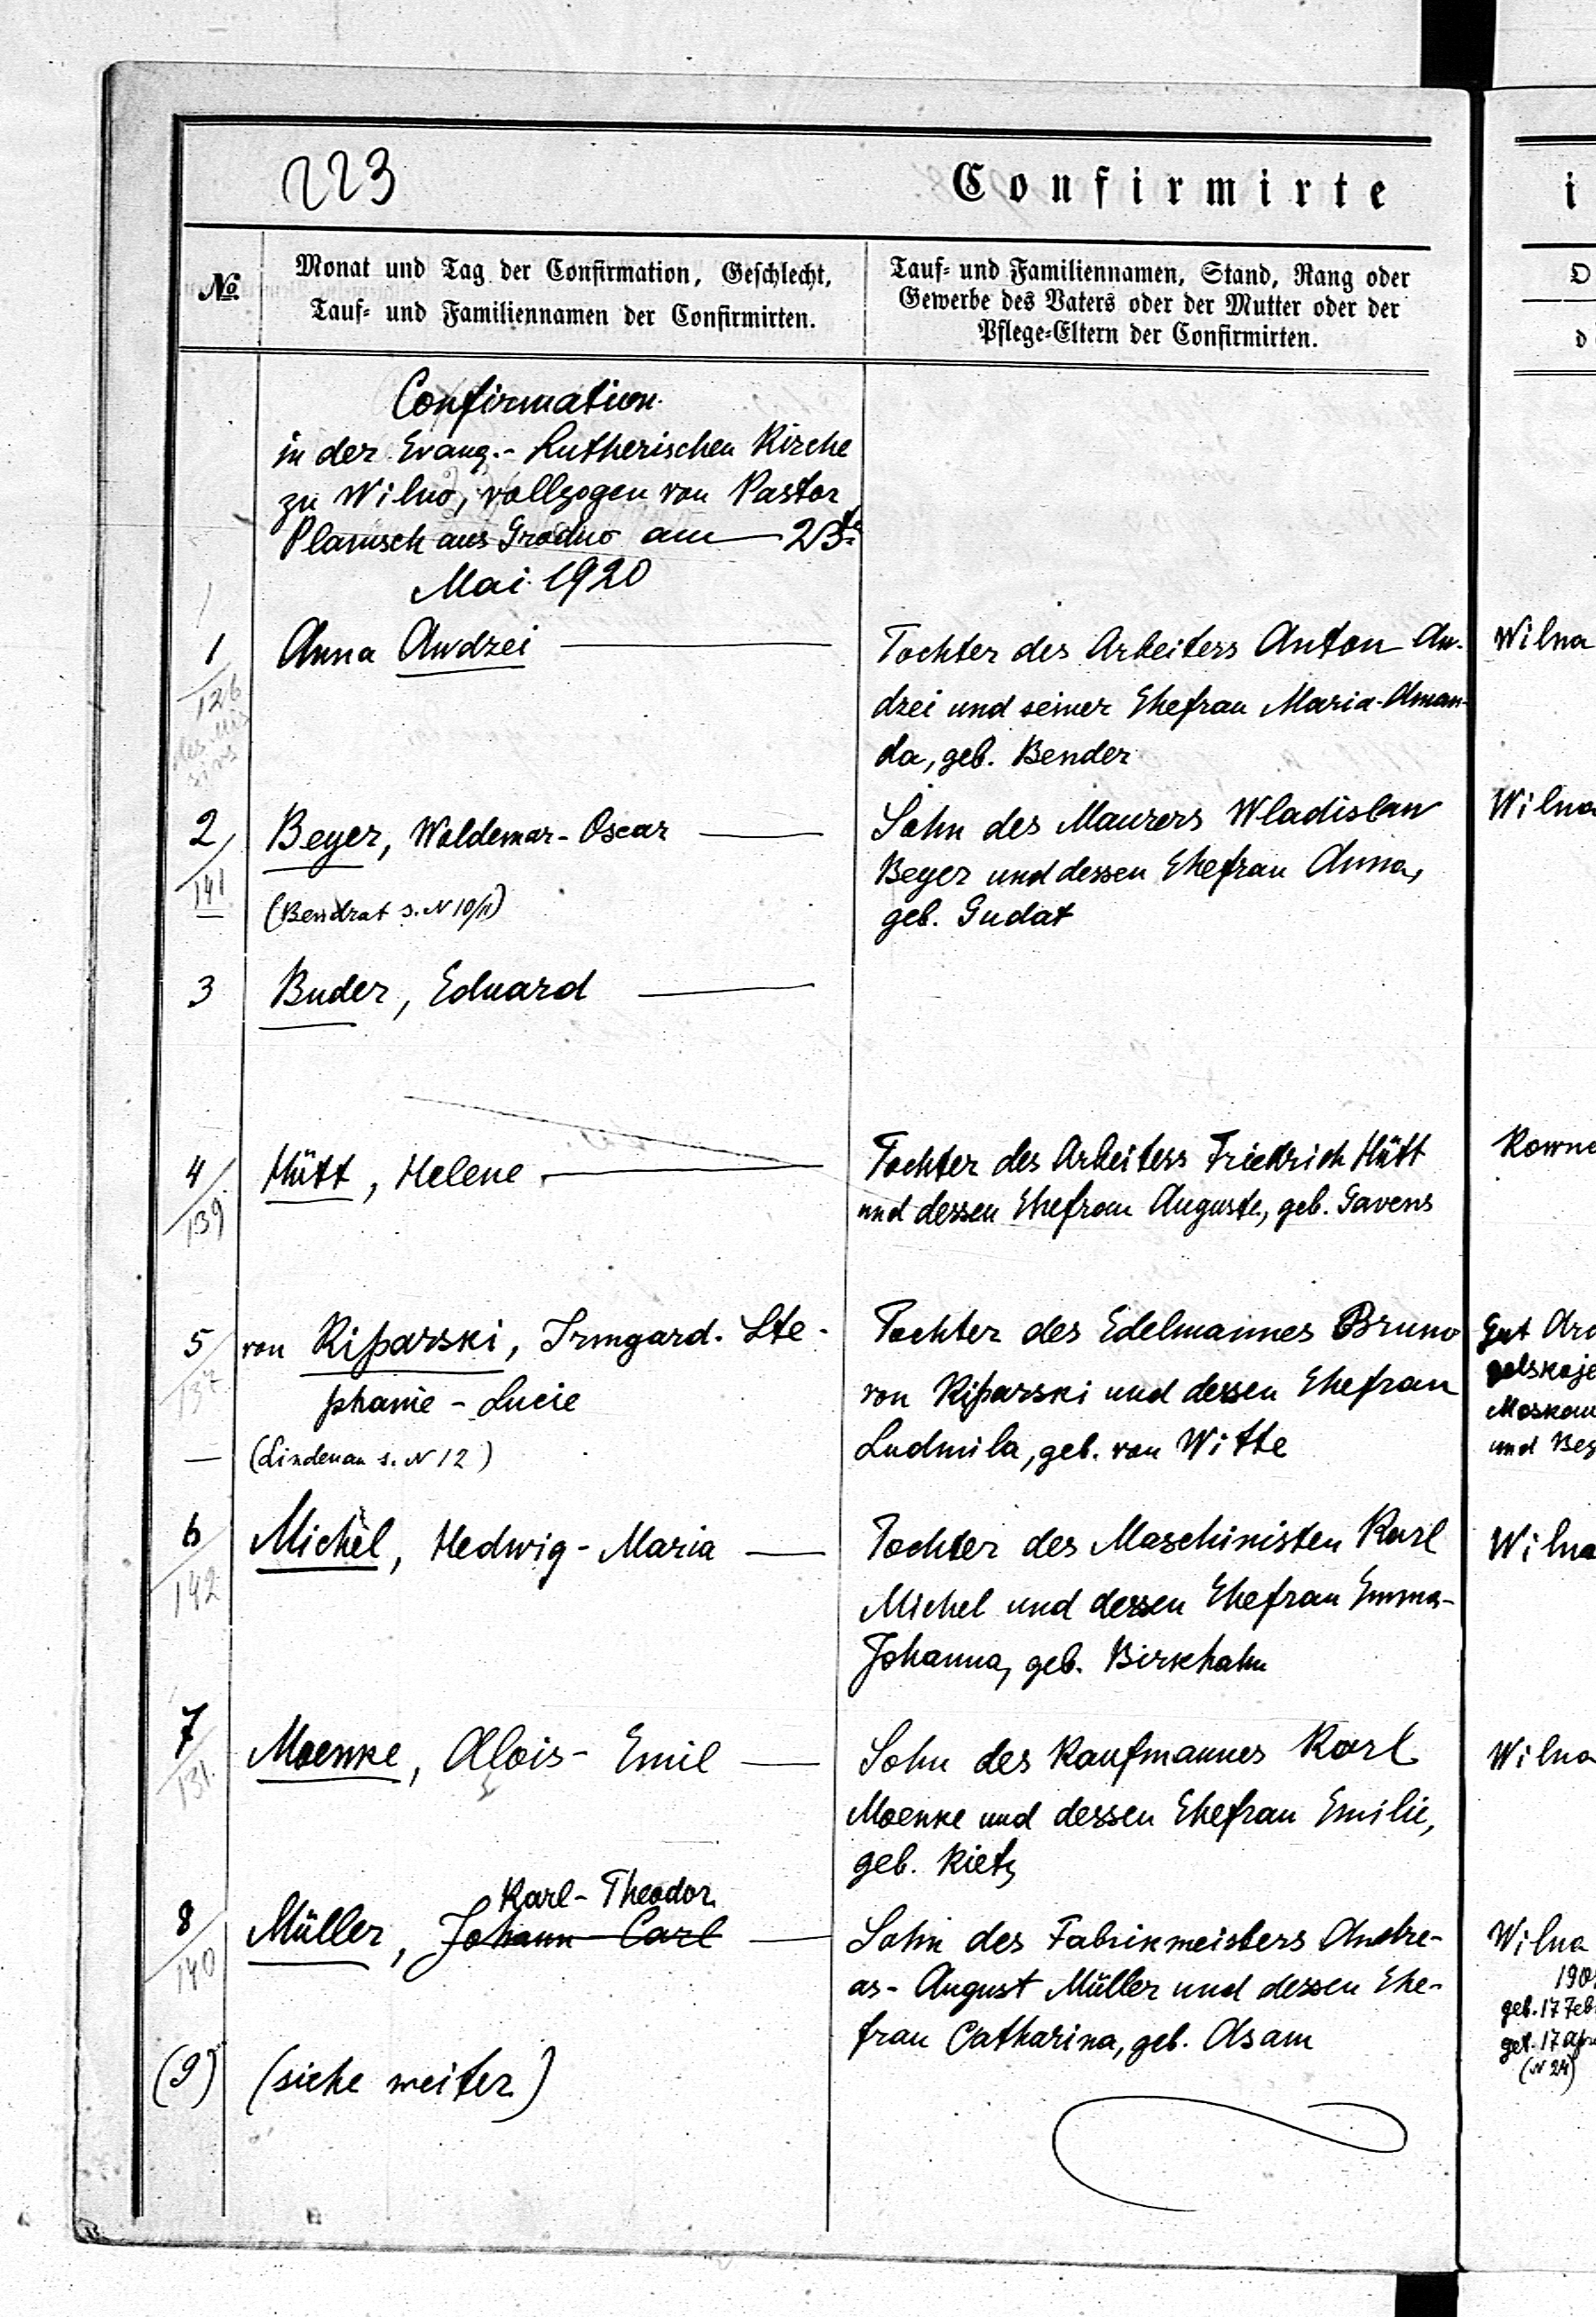 223
Confirmirte
i
№
Monat und Tag der Confirmation, Geschlecht,
Tauf- und Familiennamen der Confirmirten.
Tauf- und Familiennamen, Stand, Rang oder
Gewerbe des Vaters oder der Mutter oder der
Pflege-Eltern der Confirmirten.
Confirmation
in der Evang.- Lutherischen Kirche
zu Wilno, vollzogen von Pastor
Plamsch aus Grodno am — 23te
Mai 1920
1
126
Anna Andzei
Tochter des Arbeiters Anton An-
dzei und seiner Ehefrau Maria-Aman-
da, geb. Bender
Wilna
2
141
Beyer, Woldemar-Oscar
(Bendrat s. N 10/11)
Sohn des Maurers Wladislaw
Beyer und dessen Ehefrau Anna,
geb. Gudat
Wilna
3
Buder, Eduard
4
139
Hütt, Helene
Tochter des Arbeiters Friedrich Hütt
und dessen Ehefrau Auguste, geb. Gavens
Kowno
5
137
von Kiparski, Irmgard-Ste-
phanie-Lucie
(Lindenau s. N 12)
Tochter des Edelmannes Bruno
von Kiparski und dessen Ehefrau
Ludmila, geb. von Witte
Gut Ar
gelskoje
Moskau
und Bes
6
142
Michel, Hedwig-Maria
Tochter des Maschinisten Karl
Michel und dessen Ehefrau Emma-
Johanna, geb. Birkhahn
Wilna
7
131.
Moenke, Alois-Emil
Sohn des Kaufmannes Karl
Moenke und dessen Ehefrau Emilie,
geb. Rietz
Wilna
8
140
Karl-Theodor
Müller, Johann-Carl
Sohn des Fabrikmeisters Andre-
as-August Müller und dessen Ehe-
frau Catharina, geb. Asam
Wilna
190
geb. 17 Feb
get. 17 Apr
(N 24)
(9)
(siehe weiter)